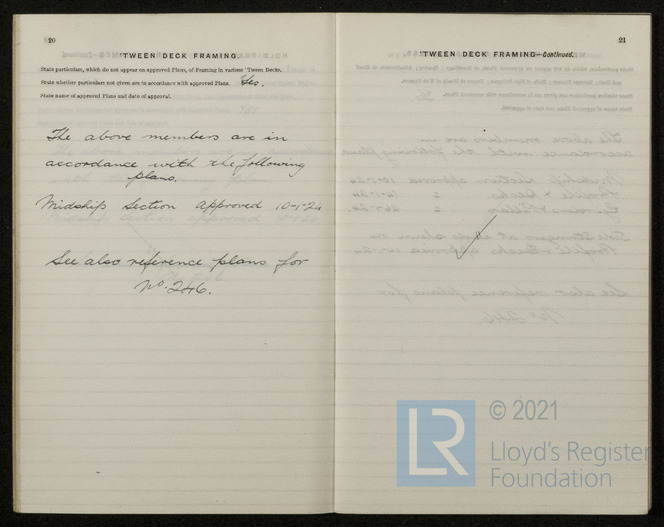 20
'TWEEN DECK FRAMING.
State particulars, which do not appear on approved Plans, of Framing in various 'Tween Decks.
State whether particulars not given are in accordance with approved Plans. Yes.
State name of approved Plans and date of approval.
The above members are in
accordance with the following
plans.
Midship Section approved 10-1-24
See also reference plans for
No. 246.
21
'TWEEN DECK FRAMING—Continued.
LR
© 2021
Lloyd's Register
Foundation